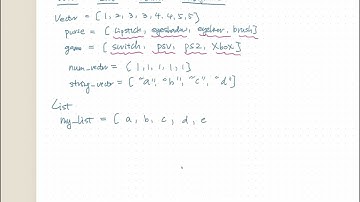 Vector = [ 1, 2, 3, 3, 4, 4, 5, 5 ]
purse = [ lipstick, eyeshadow, eyeliner, brush ]
game = [ switch, psv, ps2, Xbox ]
num_vector = [ 1, 1, 1, 1, 1 ]
string_vector = [ "a", "b", "c", "d" ]
List
my_list = [ a, b, c, d, e